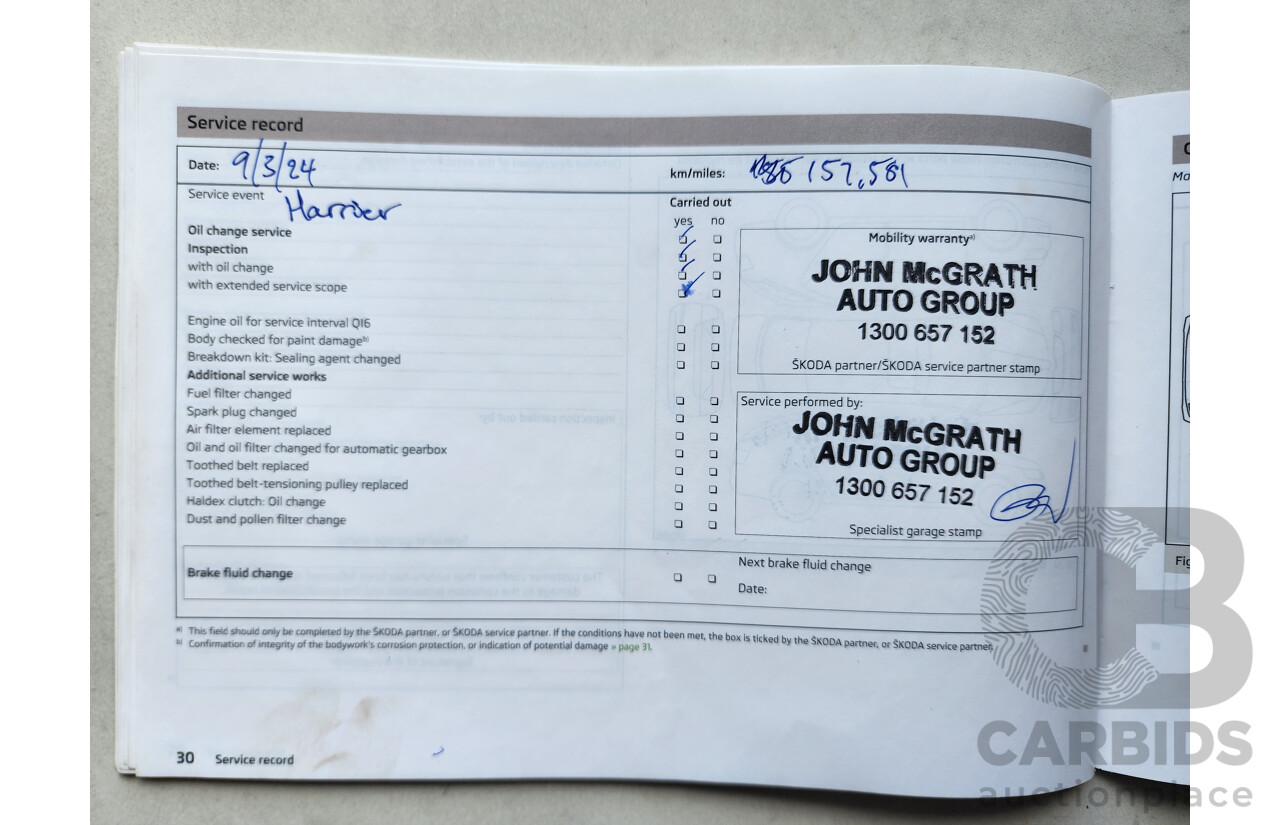 Service record
Date: 9/3/24
km/miles: 157,581
Service event
Harrier
Carried out
yes no
Oil change service
Inspection
with oil change
with extended service scope
Engine oil for service interval QI6
Body checked for paint damage b)
Breakdown kit: Sealing agent changed
Additional service works
Fuel filter changed
Spark plug changed
Air filter element replaced
Oil and oil filter changed for automatic gearbox
Toothed belt replaced
Toothed belt-tensioning pulley replaced
Haldex clutch: Oil change
Dust and pollen filter change
Mobility warranty a)
JOHN McGRATH
AUTO GROUP
1300 657 152
ŠKODA partner/ŠKODA service partner stamp
Service performed by:
JOHN McGRATH
AUTO GROUP
1300 657 152
Specialist garage stamp
Brake fluid change
Next brake fluid change
Date:
a) This field should only be completed by the ŠKODA partner, or ŠKODA service partner. If the conditions have not been met, the box is ticked by the ŠKODA partner, or ŠKODA service partner.
b) Confirmation of integrity of the bodywork's corrosion protection, or indication of potential damage » page 31.
30 Service record
CB
CARBIDS
auctionplace